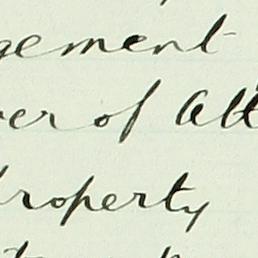 gement
er of Att
roperty